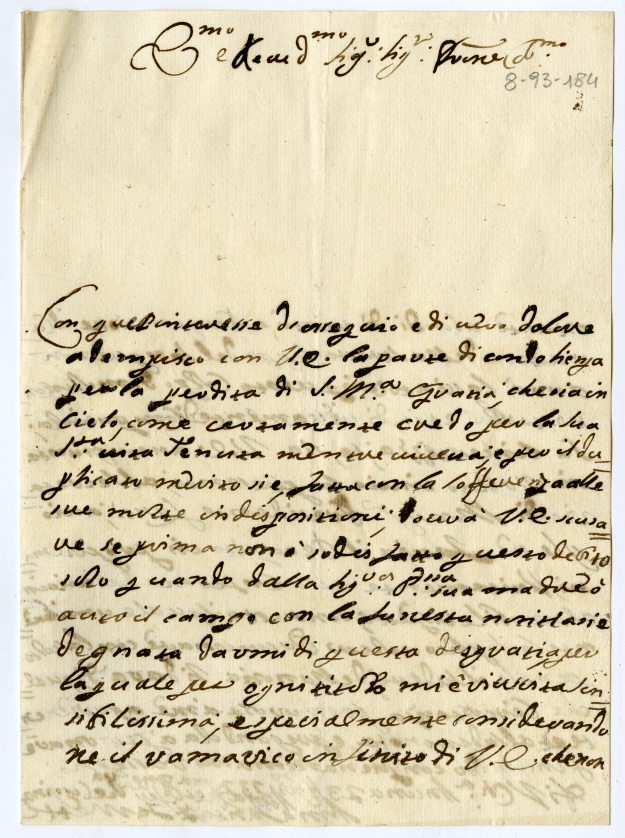 E.mo e Reued.mo Sig.r Sig.r
8-93-184
Con quell'interesse d'ossequio e di uero dolore
adempisco con V.E. la parte di condoglienza
per la perdita di S. M.a Grazia, che sia in
Cielo, come certamente credo per la sua
S.ta uita tenuta mentre uiueua, e per il du=
plicato merito si è fatta con la sofferenza alle
sue molte indispositioni; dourà V.E. scusa=
re se prima non ò sodisfatto questo debito
solo quando dalla Sig.ra P.ssa sua madre ò
auuto il campo con la funesta notitia si è
degnata darmi di questa disgratia, per
la quale per ogni titolo mi è riuscita sen=
sibilissima, e specialmente considerando
ne il ramarico infinito di V.E. che non